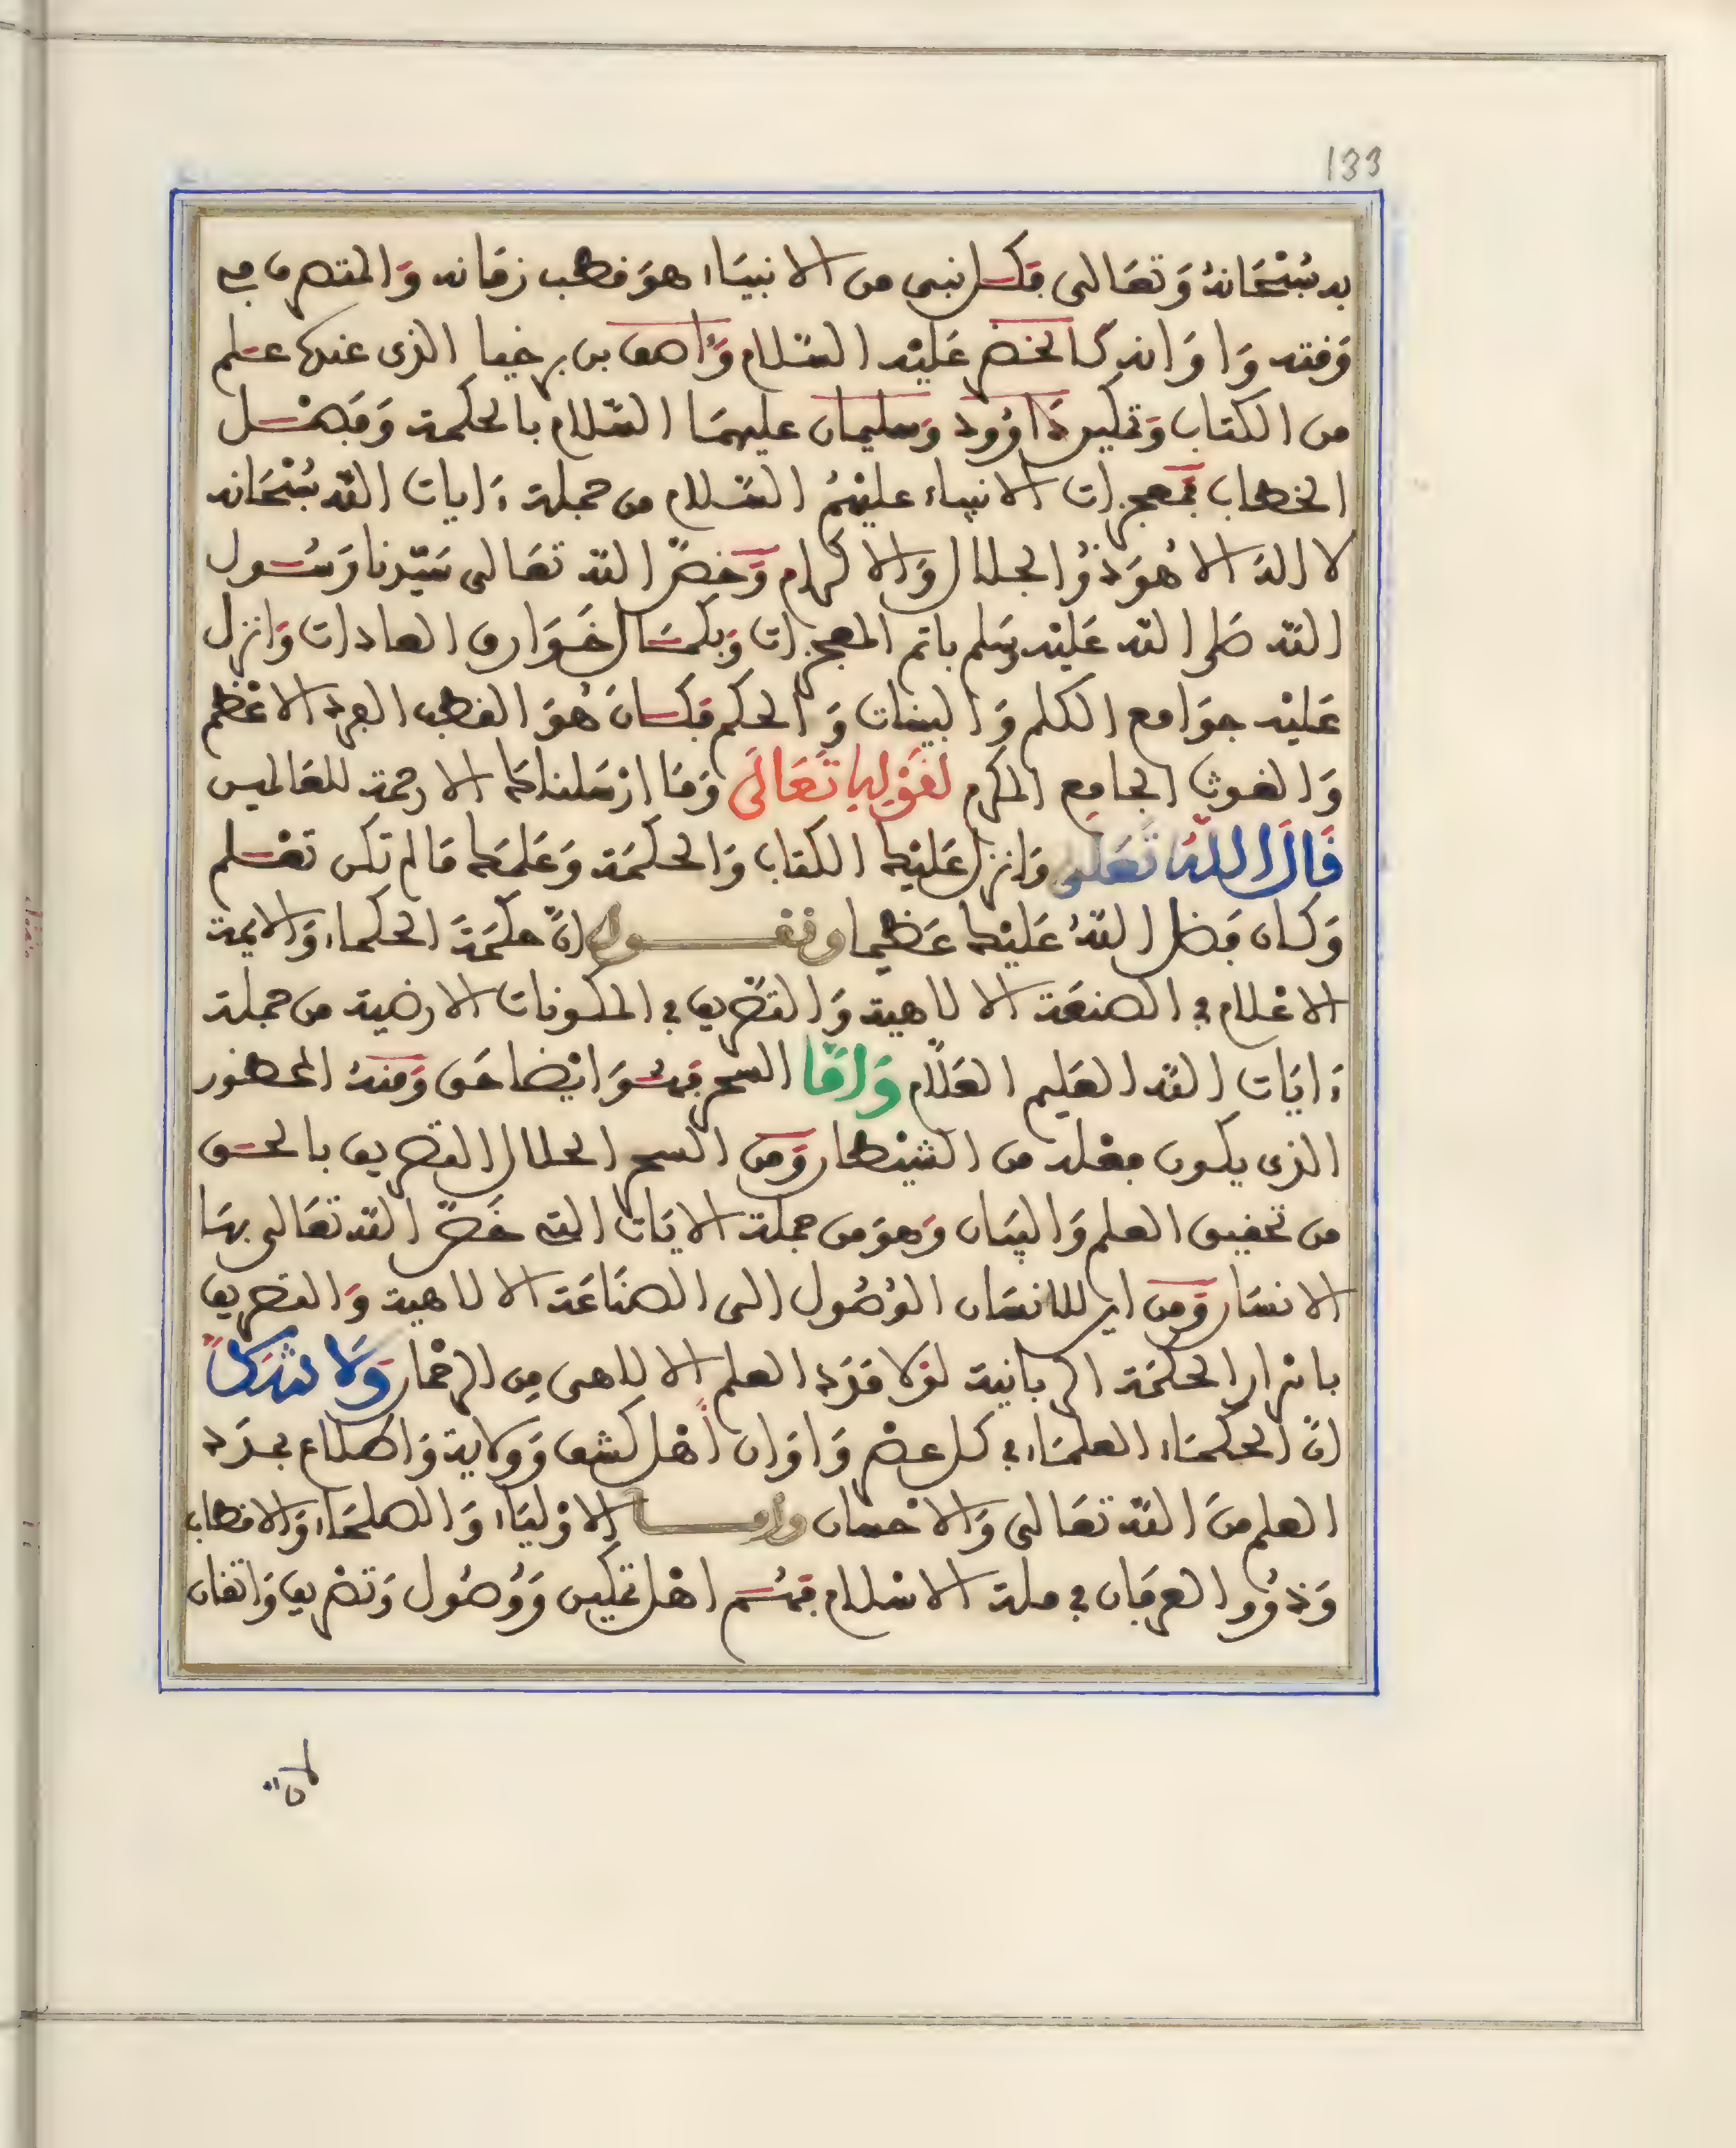 133
به سُبْحَانهُ وَتعَالى فكل نبي من الانبيَاء هوَ قطب زمَانه وَالمتصرف في
وَقته وَاوَانه كالخضر عَليْه السّلام وَاصف بن برخيا الذى عنده علم
من الكتاب وَتمكين دَاوُود وَسليمان عليهمَا السّلام بالحكمة وَفصْل
الخطاب فمعجزات الانبياء عليهمُ السّلام من جملة ءايات الله سُبْحَانه
لا اله الا هُوَ ذُو الجلال وَالاكرام وَخصّ الله تعَالى سَيّدنا رَسُول
الله صَلى الله عَليْه وسَلم باتم المعجزات وَبكمَال خَوَارق العادات وَانزل
عَليْه جوَامع الكلم وَالبينات وَالحكم فكان هُوَ القطب الفرد الاعْظم
وَالغوث الجامع المكرم لقَوْلِهِ تَعَالَى وَمَا ارْسَلناك الا رحمة للعَالمين
قَالَ اللهُ تَعَلى وَانزل عَليْك الكتاب وَالحكمَة وَعَلمَك مَا لم تكن تعْلم
وَكان فضل اللهُ عَليْك عَظيما ونقول انّ حكمَةَ الحكماء وَالايمة
الاعْلام في الصنعَة الالاهية وَالتصْريف في المكونات الارضية من جملة
ءايَات الله العَليم العَلّام وَامَّا السحر فهُوَ ايْضا حَق وَمنهُ المحظور
الذى يكون فعْله من الشيْطان وَمن السحر الحلال التصريف بالحق
من تحقيق العلم وَالبيَان وَهوَ من جملة الايَات التي خَصّ الله تعَالى بهَا
الانسَان وَمن اين للانسَان الوُصُول الى الصنَاعَة الالاهية وَالتصريف
باسْرار الحكمَة الربانية لوْلا مَدَد العلم الالاهى مِن الرحْمان وَلَا شَكَّ
انّ الحكمَاء العلمَاء في كل عصْر وَاوَان أهْل كشف وَولاية وَاطلاع بمدَد
العلم منَ الله تعَالى وَالاحسان وامـا الاوْليَاء وَالصلحَاء وَالاقطاب
وَذوُوا العرفان في ملة الاسْلام فهُم اهْل تمكين وَوُصُول وَتصْريف وَاتقان